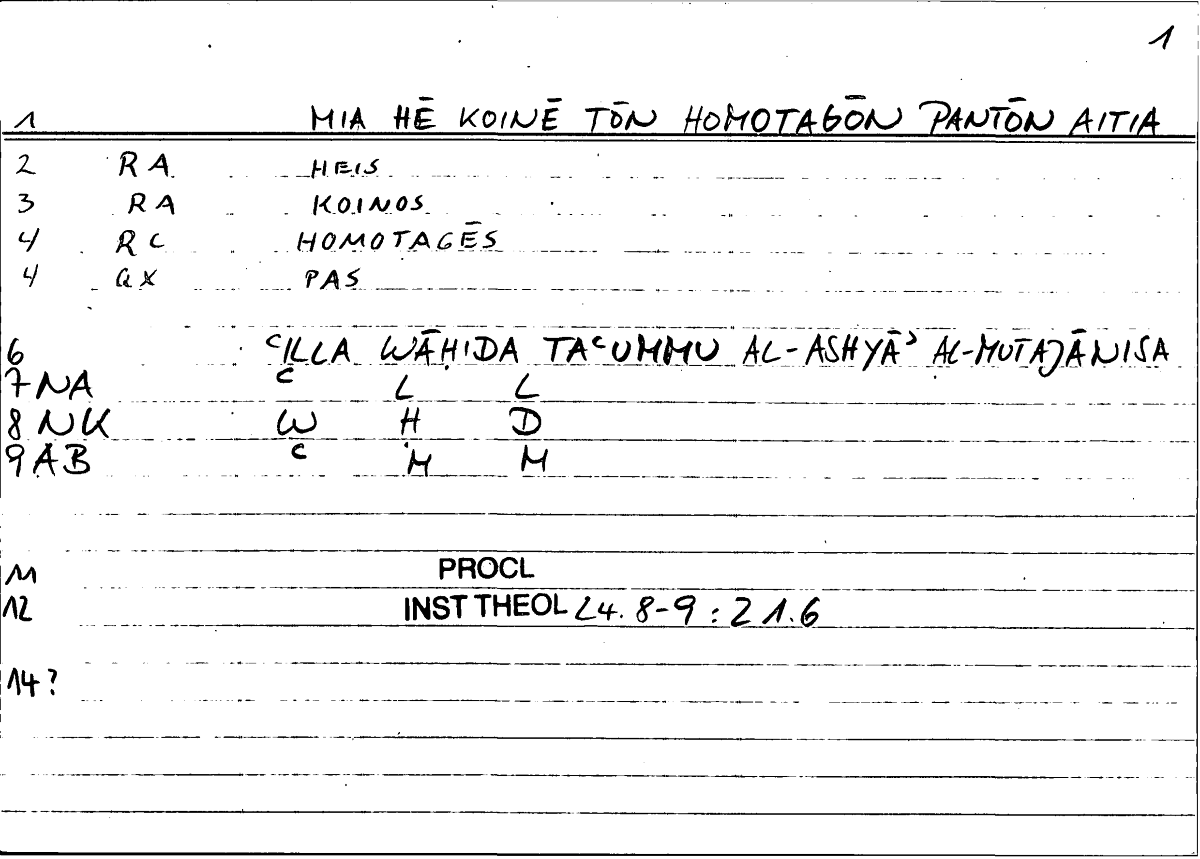 1
1 MIA HĒ KOINĒ TŌN HOMOTAGŌN PANTŌN AITIA
2 RA HEIS
3 RA KOINOS
4 RC HOMOTAGĒS
4 QX PAS
6 ʿILLA WĀḤIDA TAʿUMMU AL-ASHYĀʾ AL-MUTAJĀNISA
7 NA ʿ L L
8 NK W Ḥ D
9 AB ʿ M M
11 PROCL
12 INST THEOL 24. 8-9 : 21.6
14?